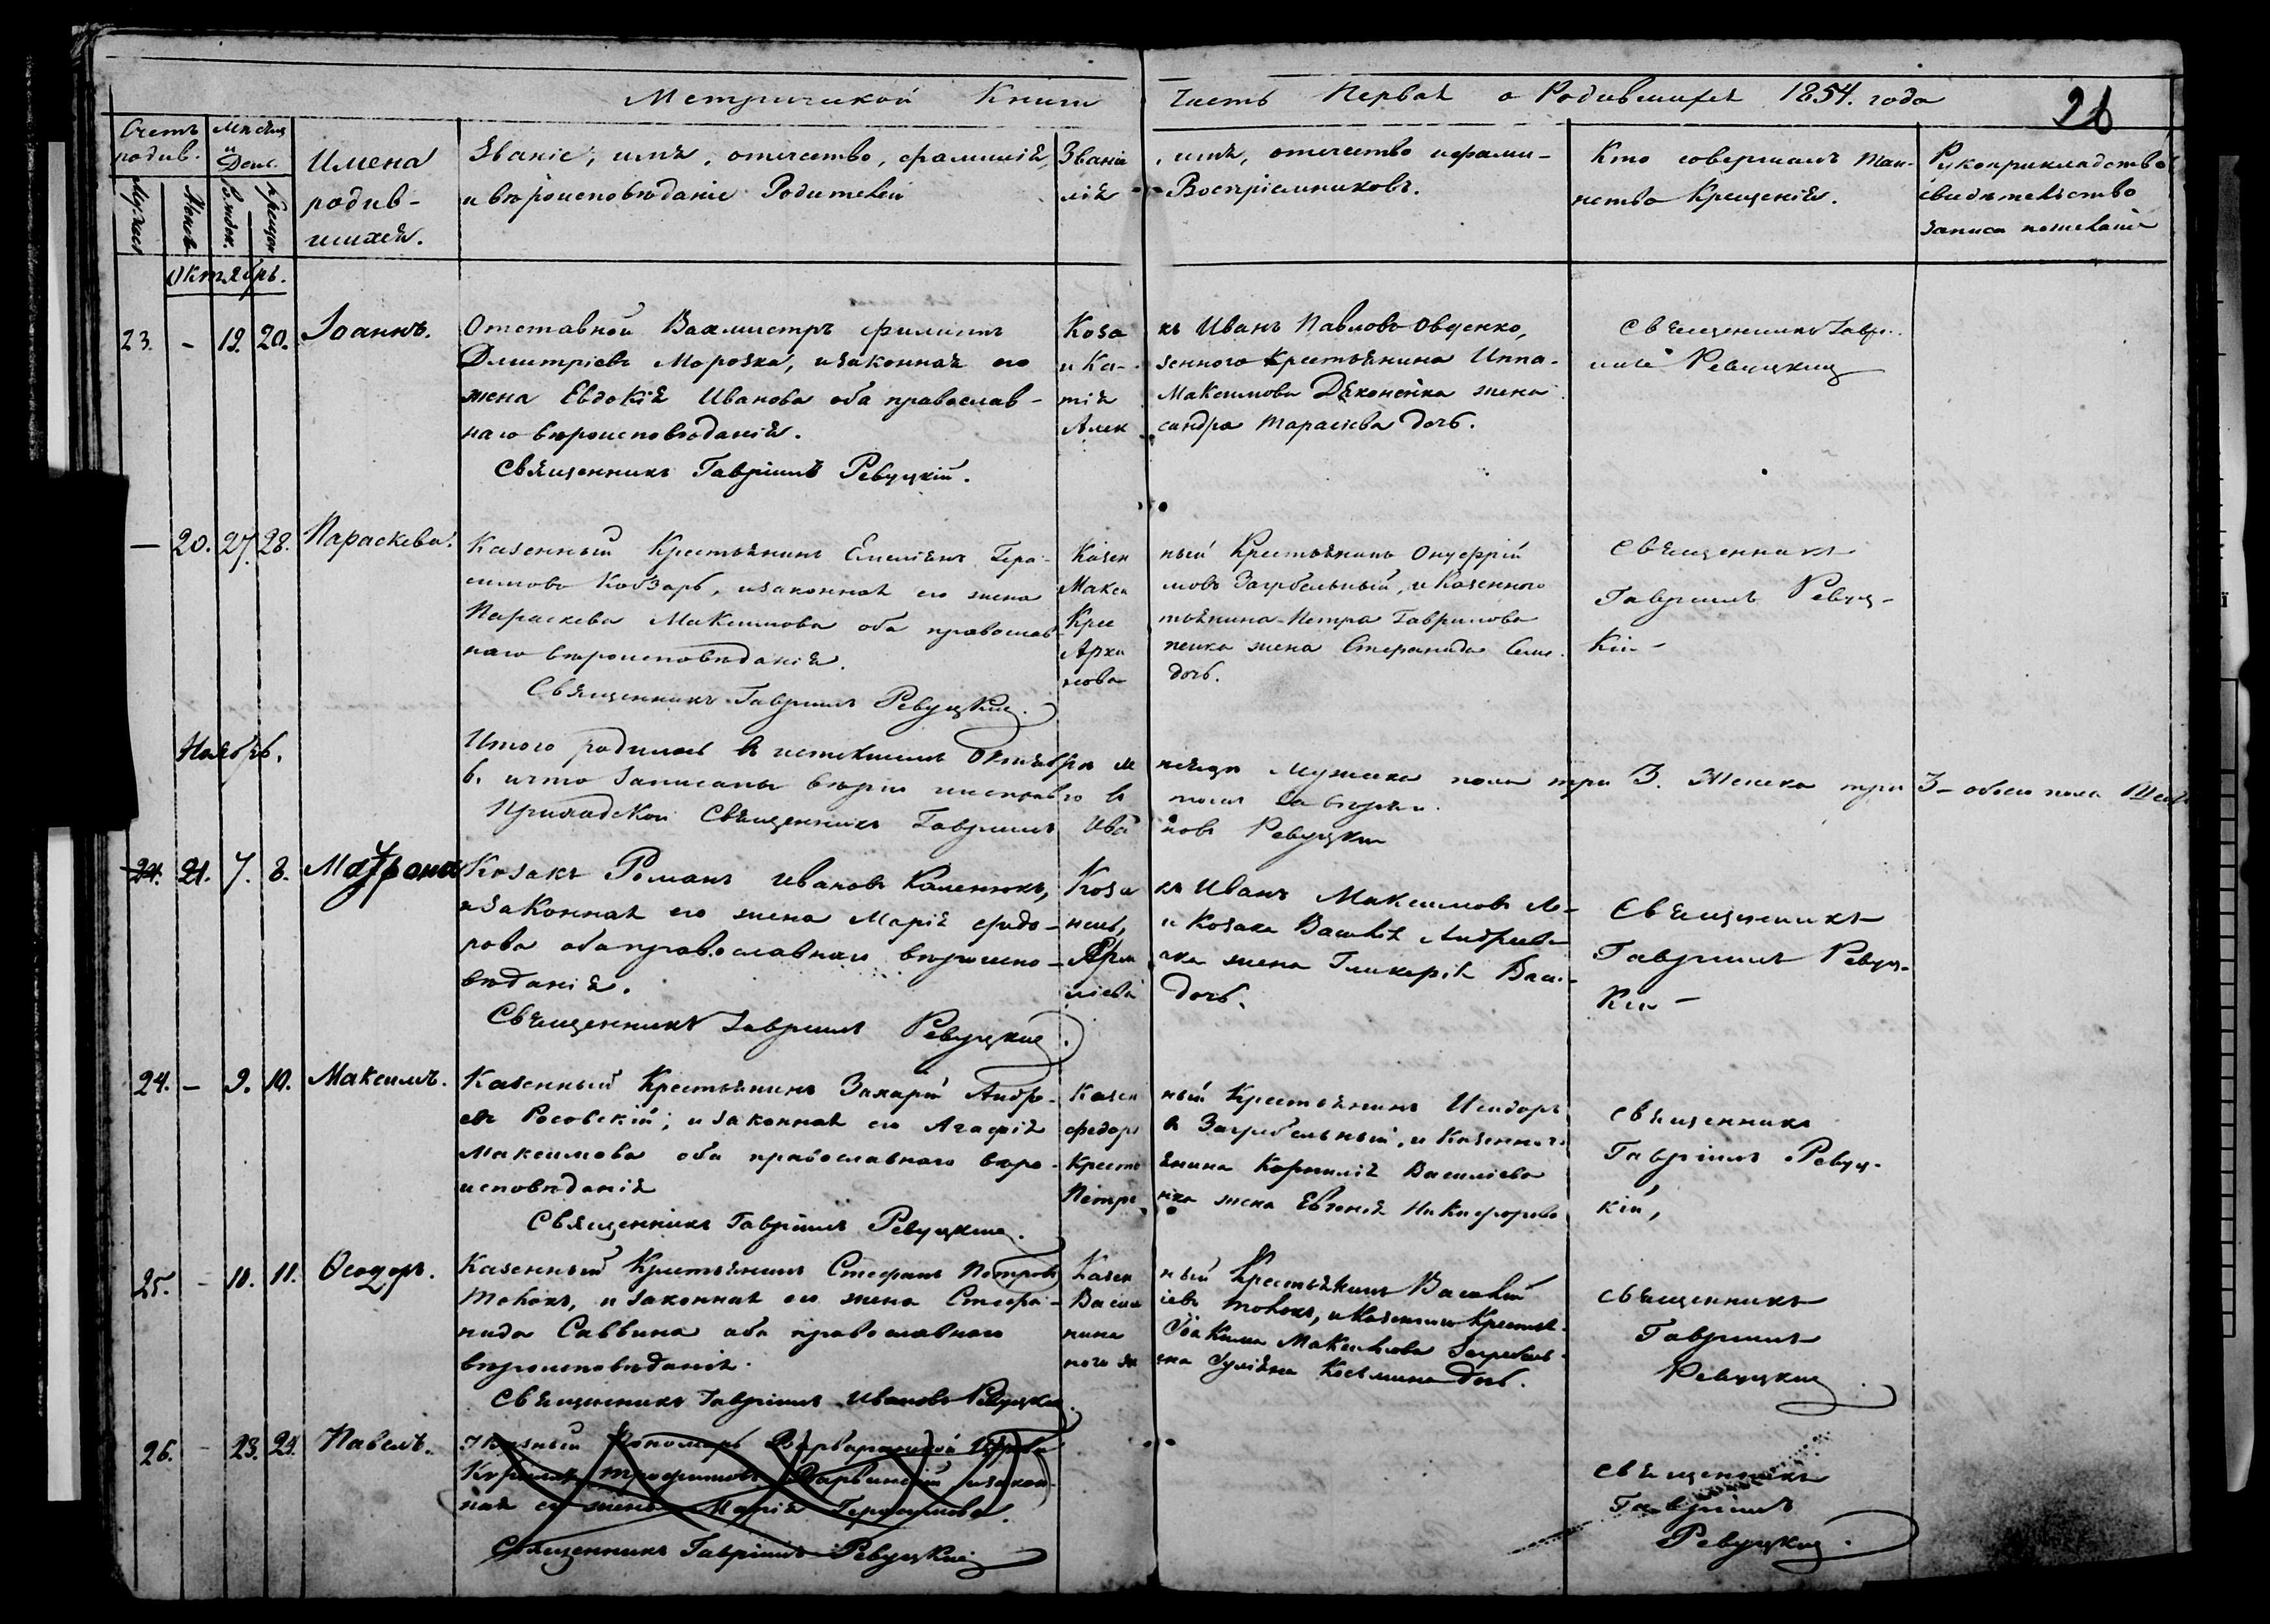 Метрической Книги Часть Первая о Родившихся 1854. года
26
Счетъ родив.
Мѣсяц и День.
Имена родив-
шихся.
Званіе, имя, отчество, фамилія,
и вѣроисповѣданіе Родителей
Званіе, имя, отчество и фами-
лія Воспріемниковъ.
Кто совершалъ Таи-
нство Крещенія.
Рукоприкладство
свидѣтельство
записи
Октябрь.
23. - 19. 20. Іоаннъ.
Отставной Вахмистръ Филиппъ
Дмитріевъ Морозка, и законная его
жена Евдокія Иванова оба православ-
наго вѣроисповѣданія.
Священникъ Гавріилъ Ревуцкій.
Козакъ Иванъ Павловъ Овденко,
и Казенного Крестьянина Иппа-
тія Максимова Дяконенка жена
Александра Тарасіева дочь.
Священникъ Гаври-
илъ Ревуцкий
— 20. 27. 28. Параскева.
Казенный Крестьянинъ Емеліянъ Гера-
симовъ Кобзарь, и законная его жена
Параскева Максимова оба православ-
наго вѣроисповѣданія.
Священникъ Гавриилъ Ревуцкий.
Казенный Крестьянинъ Онуфрій
Максимовъ Загребельный, и Казенного
Крестьянина Петра Гаврилова
жена Стефанида
дочь.
Священникъ
Гавриилъ Ревуц-
кій
Ноябрь.
Итого родилось в истекшемъ Октябрѣ мѣсяцѣ мужеска пола три 3. Женска три 3 - обоего пола
и что записаны вѣрно
Приходской Священникъ Гавриилъ Ивановъ Ревуцкий
24. 21. 7. 8. Матрона
Козакъ Романъ Ивановъ Каленюкъ,
и законная его жена Марія Фидо-
рова оба православнаго вѣроиспо-
вѣданія.
Священникъ Гавриилъ Ревуцкий.
Козакъ Иванъ Максимовъ
и Козака Василія Андреева
жена Гликерія Васи-
ліева дочь.
Священникъ
Гавриилъ Ревуц-
кий
24. - 9. 10. Максимъ.
Казенный Крестьянинъ Захарій Андре-
евъ Росовскій, и законная его Агафія
Максимова оба православнаго вѣро-
исповѣданія
Священникъ Гавріилъ Ревуцкий.
Казенный Крестьянинъ Исидоръ
Федоровъ Загребельный, и Казенного
Крестьянина Корнилія Василіева
Петренка жена Евгенія Никифорова
Священникъ
Гавріилъ Ревуц-
кій,
25. - 10. 11. Ѳеодоръ.
Казенный Крестьянинъ Стефанъ Петровъ
и законная его жена Стефа-
нида Саввина оба православнаго
вѣроисповѣданія.
Священникъ Гавріилъ Ивановъ Ревуцкий.
Казенный Крестьянинъ Василій
и Казенного Крестья-
нина Іоакима Максимова Загребель-
ного жена Іуліяна Косьмина дочь.
Священникъ
Гавріилъ
Ревуцкий.
26. - 23. 24. Павелъ.
Пономарь
Трофимовъ и закон-
ная его жена Марія Герасимова.
Священникъ Гавріилъ Ревуцкий
Священникъ
Гавріилъ
Ревуцкий.